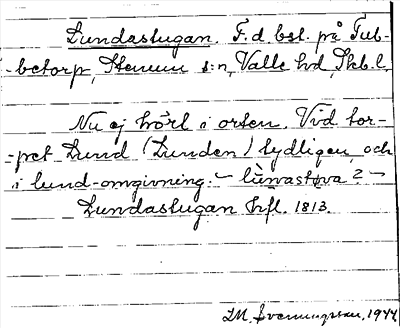 Lundastugan. F.d bst. på Tub-
-betorp, Stenum s:n, Valle hd, Skb. l.
Nu ej hört i orten. Vid tor-
-pet Lund (Lunden) tydligen och
i lund-omgivning. – lùnastøva? –
Lundastugan Hfl. 1813.
I.M. Svenningsson, 1944